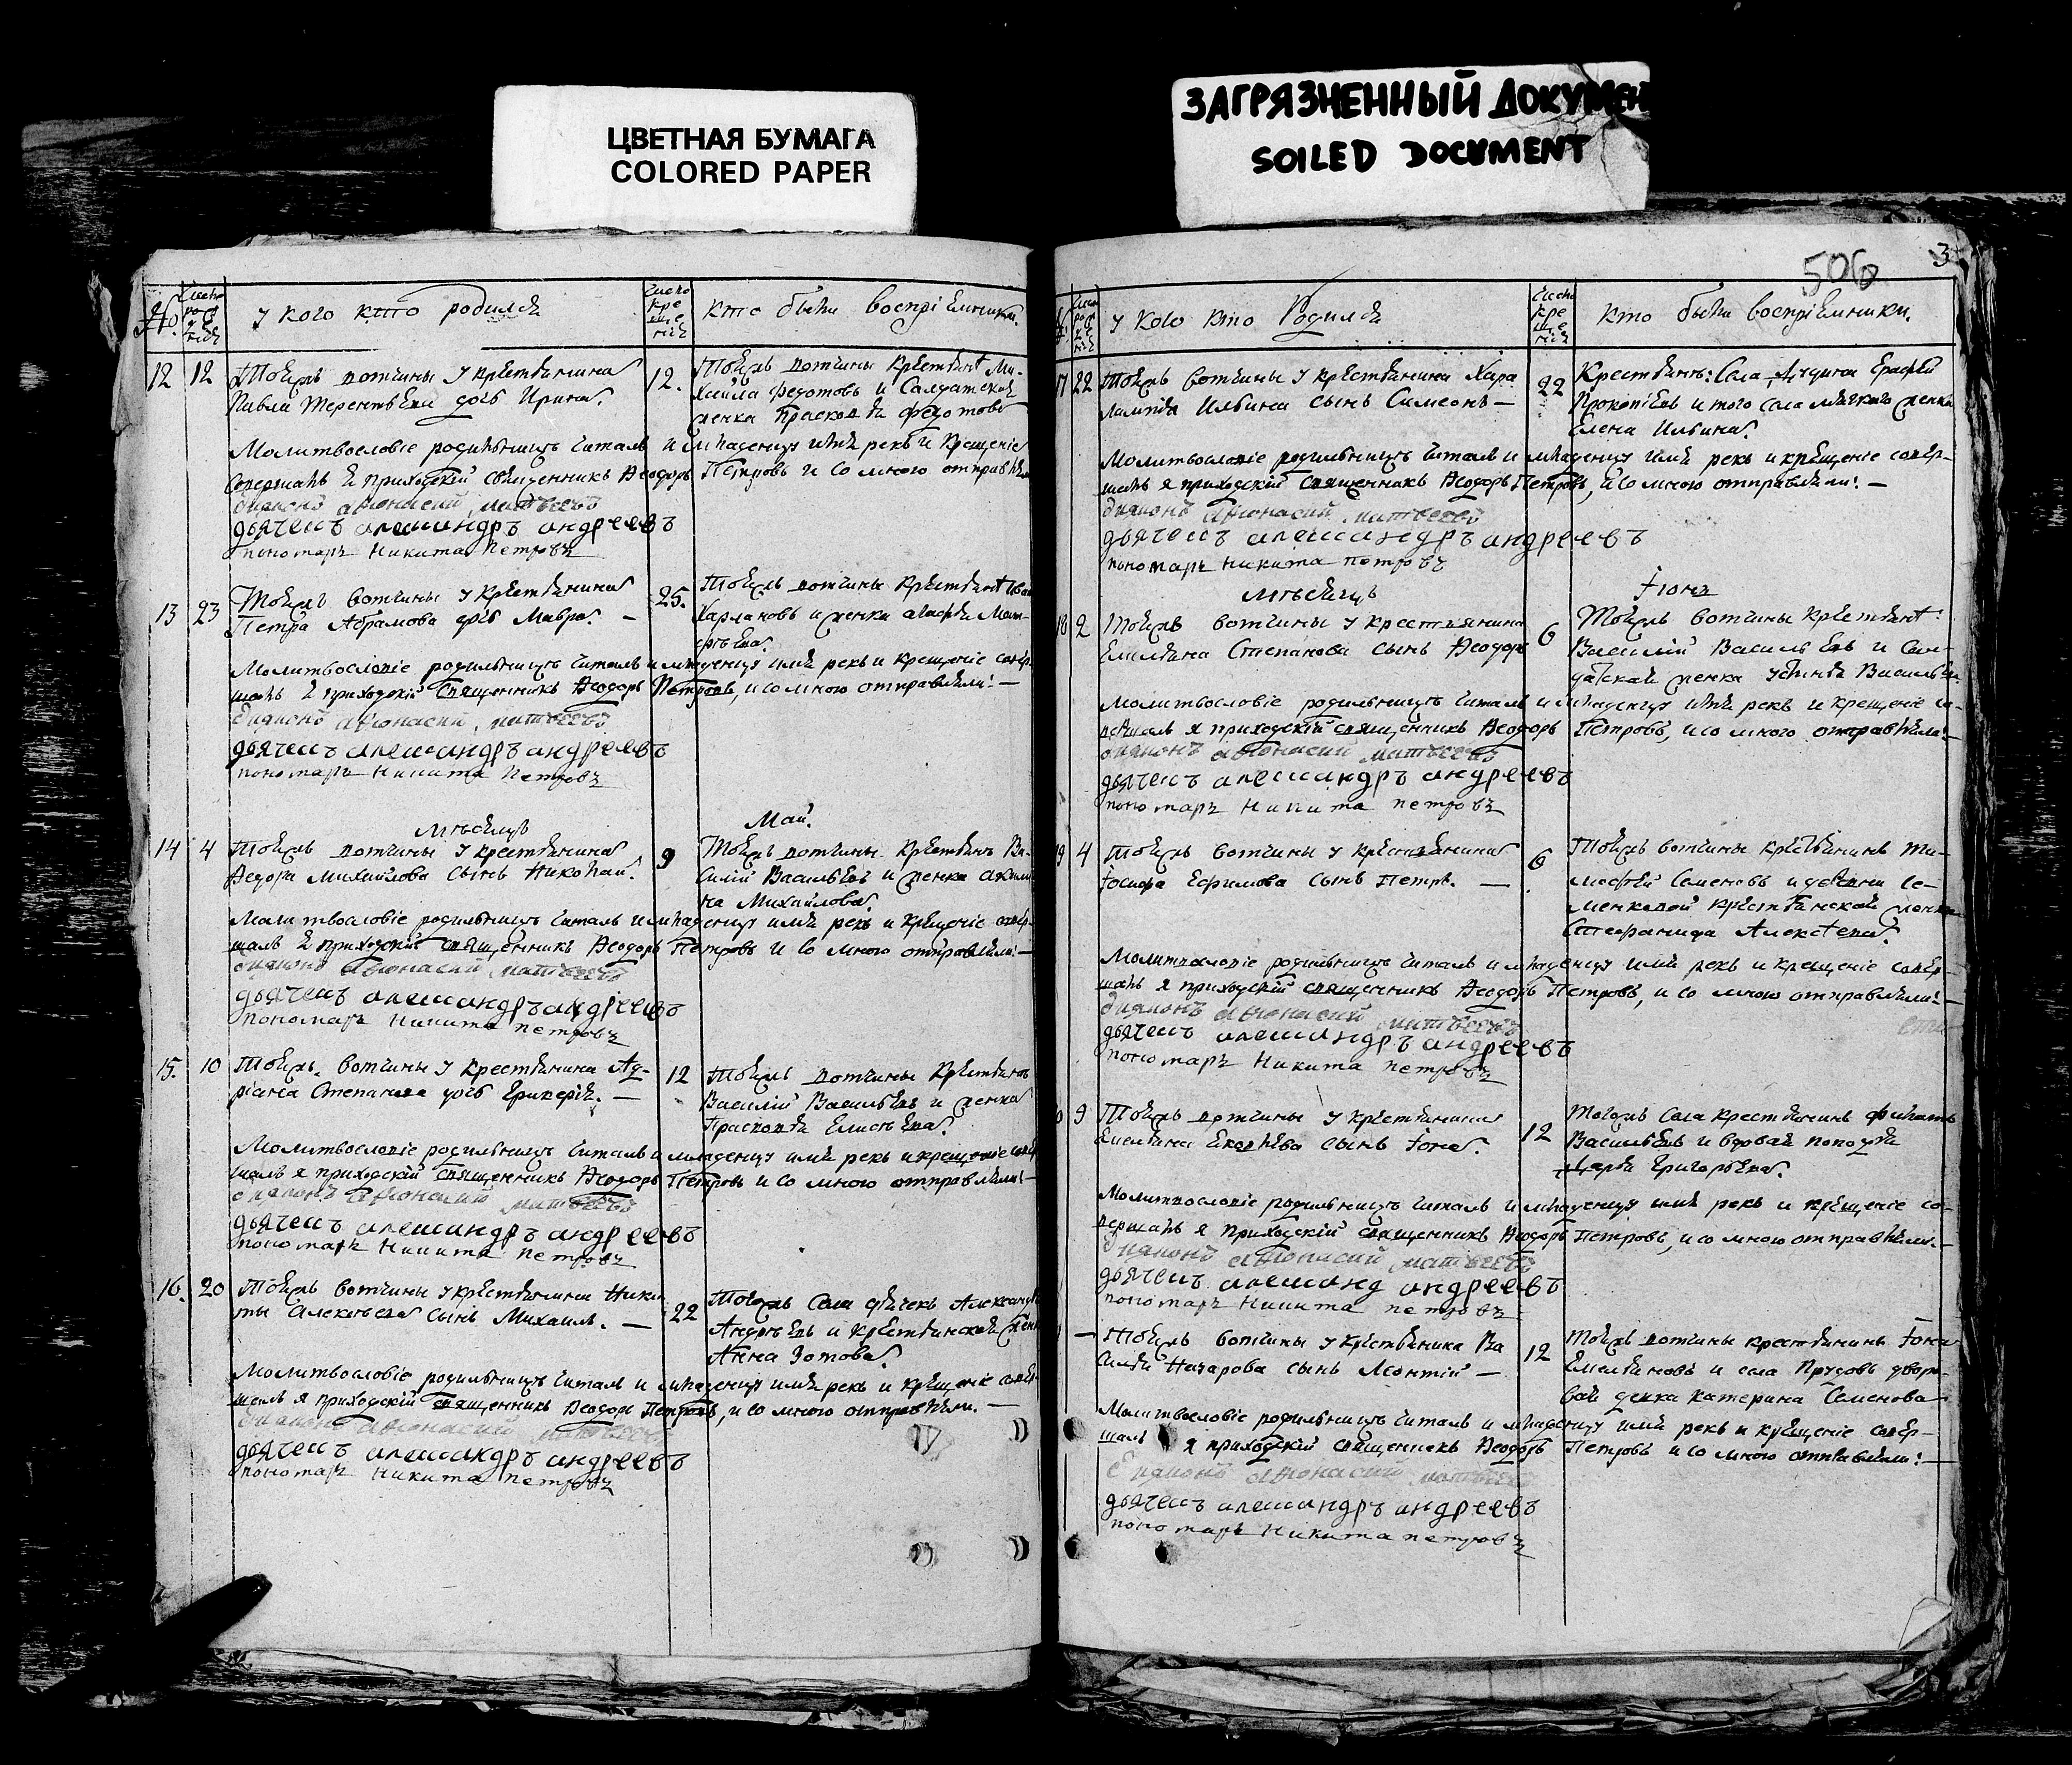 ЦВЕТНАЯ БУМАГА
COLORED PAPER
ЗАГРЯЗНЕННЫЙ ДОКУМЕН
SOILED DOCUMENT
506
3
№ Число рожденія у кого кто родился Число крещенія кто были воспріемники.
12 12 Тоейжъ вотчины у крестьянина
Павла Терентьева дочь Ирина.
12. Тоейжъ вотчины крестьянинъ Ми-
хаила Федотовъ и Салдатская
женка Прасковья Федотова
Молитвословіе родильницѣ читалъ и младенцу имя рекъ и крещеніе
совершалъ я приходскій священникъ Ѳеодоръ Петровъ и со мною отправляли
диаконъ афонасий матвеевъ
дьячекъ александръ андреевъ
пономарь Никита Петровъ
13 23 Тоейжъ вотчины у крестьянина
Петра Абрамова дочь Мавра. —
25. Тоейжъ вотчины крестьянинъ Иван
Харламовъ и женка агафья Мат-
фѣева.
Молитвословіе родильницѣ читалъ и младенцу имя рекъ и крещеніе совер-
шалъ я приходскій священникъ Ѳеодоръ Петровъ, и со мною отправляли: —
диаконъ афонасий матвеевъ
дьячекъ александръ андреевъ
пономарь Никита Петровъ
Мѣсяцъ Май.
14 4 Тоейжъ вотчины у крестьянина
Ѳедора Михайлова сынъ Николай.
9 Тоейжъ вотчины крестьянинъ Ва-
силій Васильевъ и женка акили-
на Михайлова.
Молитвословіе родильницѣ читалъ и младенцу имя рекъ и крещеніе совер-
шалъ я приходскій священникъ Ѳеодоръ Петровъ и со мною отправляли: —
диаконъ афонасий матвеевъ
дьячекъ александръ андреевъ
пономарь Никита петровъ
15. 10 Тоейжъ вотчины у крестьянина Ад-
ріана Степанова дочь Гликерія. —
12 Тоейжъ вотчины крестьянинъ
Василій Васильевъ и женка
Прасковья Елисѣева.
Молитвословіе родильницѣ читалъ и младенцу имя рекъ и крещеніе совер
шалъ я приходскій священникъ Ѳеодоръ Петровъ и со мною отправляли: —
диаконъ афонасий матвеевъ
дьячекъ александръ андреевъ
пономарь Никита петровъ
16. 20 Тоейжъ вотчины у крестьянина Ники
ты Алексѣева сынъ Михаилъ. —
22 Тогожъ Села дьячекъ Александръ
Андрѣевъ и крестьянская женка
Анна Зотова.
Молитвословіе родильницѣ читалъ и младенцу имя рекъ и крещеніе совер-
шалъ я приходскій священникъ Ѳеодоръ Петровъ, и со мною отправляли. —
диаконъ афонасий матвеевъ
дьячекъ александръ андреевъ
пономарь Никита петровъ
у кого кто Родился Число крещенія кто были воспріемники.
17 22 Тоейжъ вотчины у крестьянина Хара
лампія Ильина сынъ Симеонъ —
22 Крестьянинъ: Села Ерафей
Прокопіевъ и того села женка
Елена Ильина.
Молитвословіе родильницѣ читалъ и младенцу имя рекъ и крещеніе совер-
шалъ я приходскій священникъ Ѳеодоръ Петровъ, и со мною отправляли: —
диаконъ афонасий матвеевъ
дьячекъ александръ андреевъ
пономарь Никита петровъ
мѣсяцъ Іюнь
18 2 Тоейжъ вотчины у крестьянина
Емельяна Степанова сынъ Ѳеодоръ
6 Тоейжъ вотчины крестьянинъ:
Василій Васильевъ и Сал-
датская женка устинья Васильева.
Молитвословіе родильницѣ читалъ и младенцу имя рекъ и крещеніе со-
вершалъ я приходскій священникъ Ѳеодоръ Петровъ, и со мною отправляли: —
диаконъ афонасий матвеевъ
дьячекъ александръ андреевъ
пономарь Никита петровъ
19 4 Тоейжъ вотчины у крестьянина
Іосифа Ефимова сынъ Петръ. —
6 Тоейжъ вотчины крестьянинъ Ти-
мофей Семеновъ и деревни Се-
менковой крестьянская женка
Стефанида Алексѣева.
Молитвословіе родильницѣ читалъ и младенцу имя рекъ и крещеніе совер-
шалъ я приходскій священникъ Ѳеодоръ Петровъ, и со мною отправляли: —
диаконъ афонасий матвеевъ
дьячекъ александръ андреевъ
пономарь Никита петровъ
0 9 Тоейжъ вотчины у крестьянина
Емельяна сынъ Іона.
12 Тогожъ Села крестьянинъ филатъ
Васильевъ и вдовая попадья
Дарья Григорьева.
Молитвословіе родильницѣ читалъ и младенцу имя рекъ и крещеніе со-
вершалъ я приходскій священникъ Ѳеодоръ Петровъ, и со мною отправляли. —
диаконъ афонасий матвеевъ
дьячекъ александ андреевъ
пономарь Никита петровъ
— Тоейжъ вотчины у крестьянина Ва
силья Назарова сынъ Леонтій —
12 Тоейжъ вотчины крестьянинъ Іона
Емельяновъ и села Прудовъ дворо-
вая девка катерина Семенова
Молитвословіе родильницѣ читалъ и младенцу имя рекъ и крещеніе совер-
шалъ я приходскій священникъ Ѳеодоръ Петровъ и со мною отправляли: —
диаконъ афонасий матвеевъ
дьячекъ александръ андреевъ
пономарь Никита петровъ